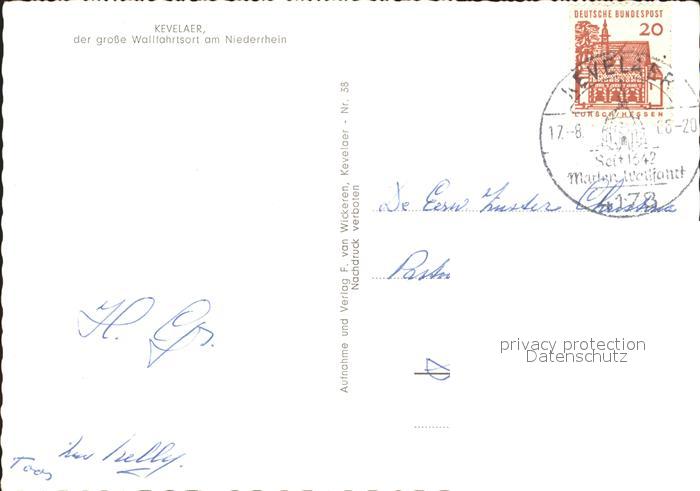 KEVELAER,
der große Wallfahrtsort am Niederrhein
DEUTSCHE BUNDESPOST
20
LORSCH/HESSEN
KEVELAER
17.-8.
68-20
Seit 1642
Marien Wallfahrt
4178
Aufnahme und Verlag F. van Wickeren, Kevelaer - Nr. 38
Nachdruck verboten
De Eerw Zuster Christina
H.
privacy protection
Datenschutz